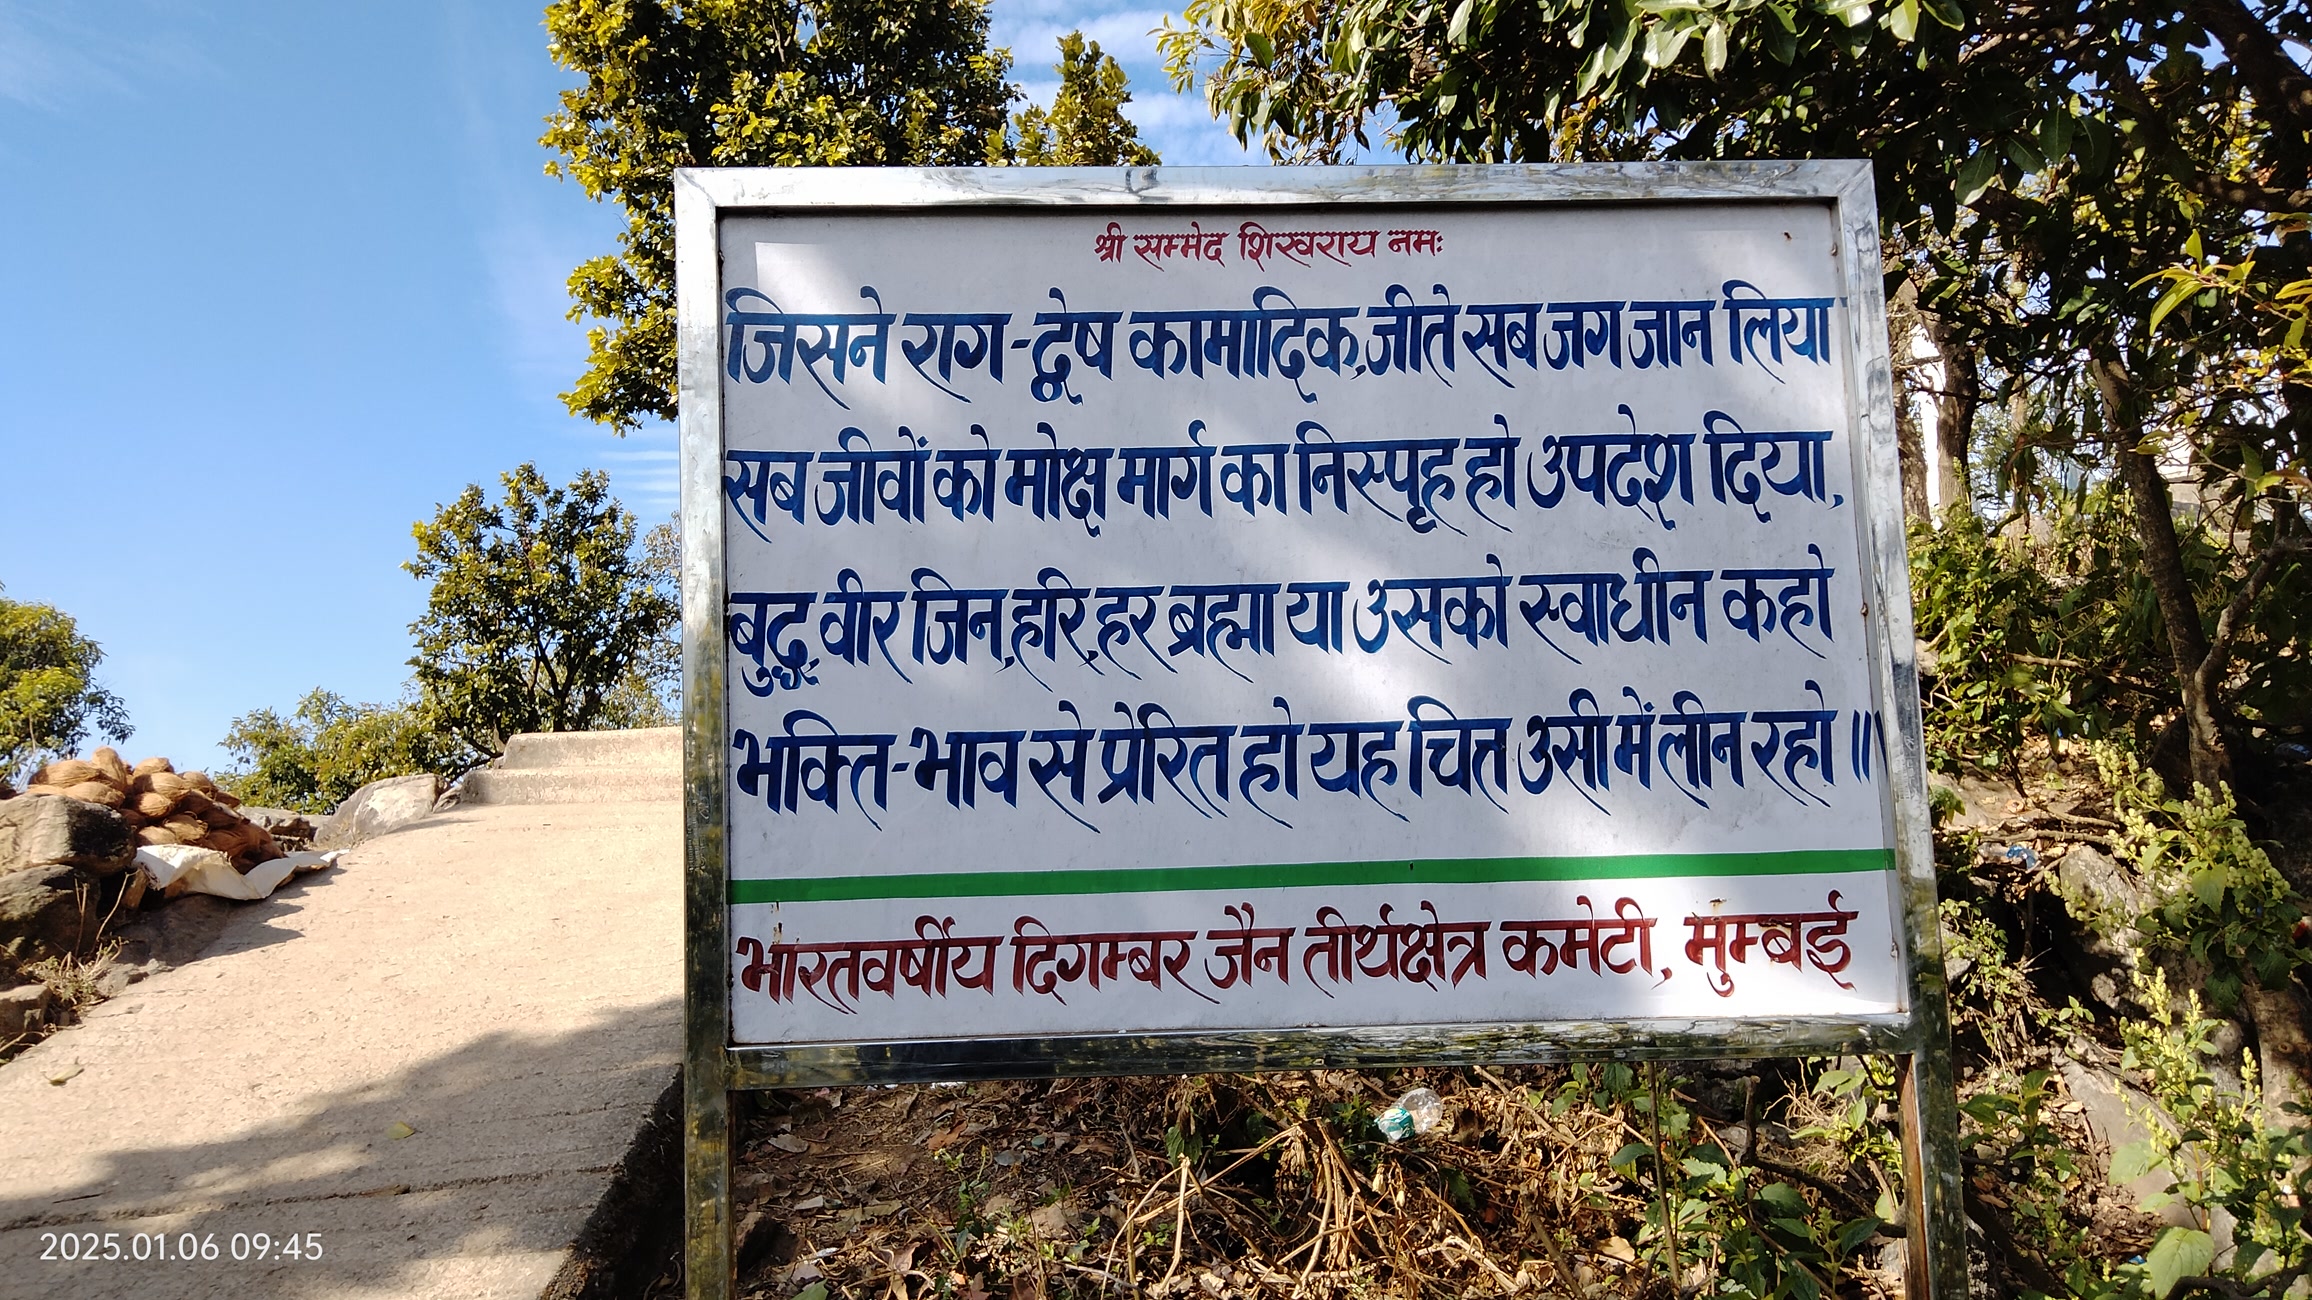 श्री सम्मेद शिखराय नमः
जिसने राग-द्वेष कामादिक,जीते सब जग जान लिया
सब जीवों को मोक्ष मार्ग का निस्पृह हो उपदेश दिया,
बुद्ध, वीर जिन,हरि,हर ब्रह्मा या उसको स्वाधीन कहो
भक्ति-भाव से प्रेरित हो यह चित्त उसी में लीन रहो ॥
भारतवर्षीय दिगम्बर जैन तीर्थक्षेत्र कमेटी, मुम्बई
2025.01.06 09:45